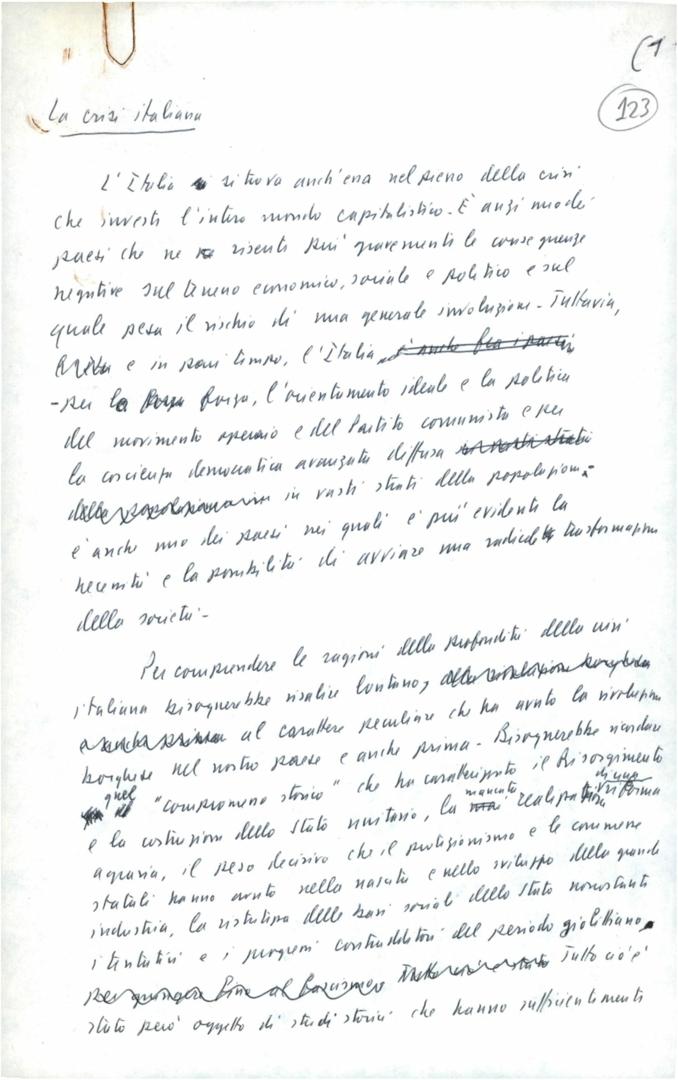 (1
123
La crisi italiana
L'Italia si trova anch'essa nel pieno della crisi
che investe l'intero mondo capitalistico. È anzi uno dei
paesi che ne risente più gravemente le conseguenze
negative sul terreno economico, sociale e politico e sul
quale pesa il rischio di una generale involuzione. Tuttavia,
e in pari tempo, l'Italia, è anche fra i paesi
- per la forza, l'orientamento ideale e la politica
del movimento operaio e del Partito comunista e per
la coscienza democratica avanzata diffusa in vasti strati
della popolazione in vasti strati della popolazione -
è anche uno dei paesi nei quali è più evidente la
necessità e la possibilità di avviare una radicale trasformazione
della società.
Per comprendere le ragioni della profondità della crisi
italiana bisognerebbe risalire lontano, alla rivoluzione borghese
al carattere peculiare che ha avuto la rivoluzione
borghese nel nostro paese e anche prima. Bisognerebbe ricordare
quel "compromesso storico" che ha caratterizzato il Risorgimento
e la costruzione dello Stato unitario, la mancata di una riforma
agraria, il peso decisivo che il protezionismo e le commesse
statali hanno avuto nella nascita e nello sviluppo della grande
industria, la ristrettezza delle basi sociali dello Stato nonostante
i tentativi e i progressi contraddittori del periodo giolittiano,
per giungere fino al fascismo Tutto ciò è stato Tutto ciò è
stato però oggetto di studi storici che hanno sufficientemente